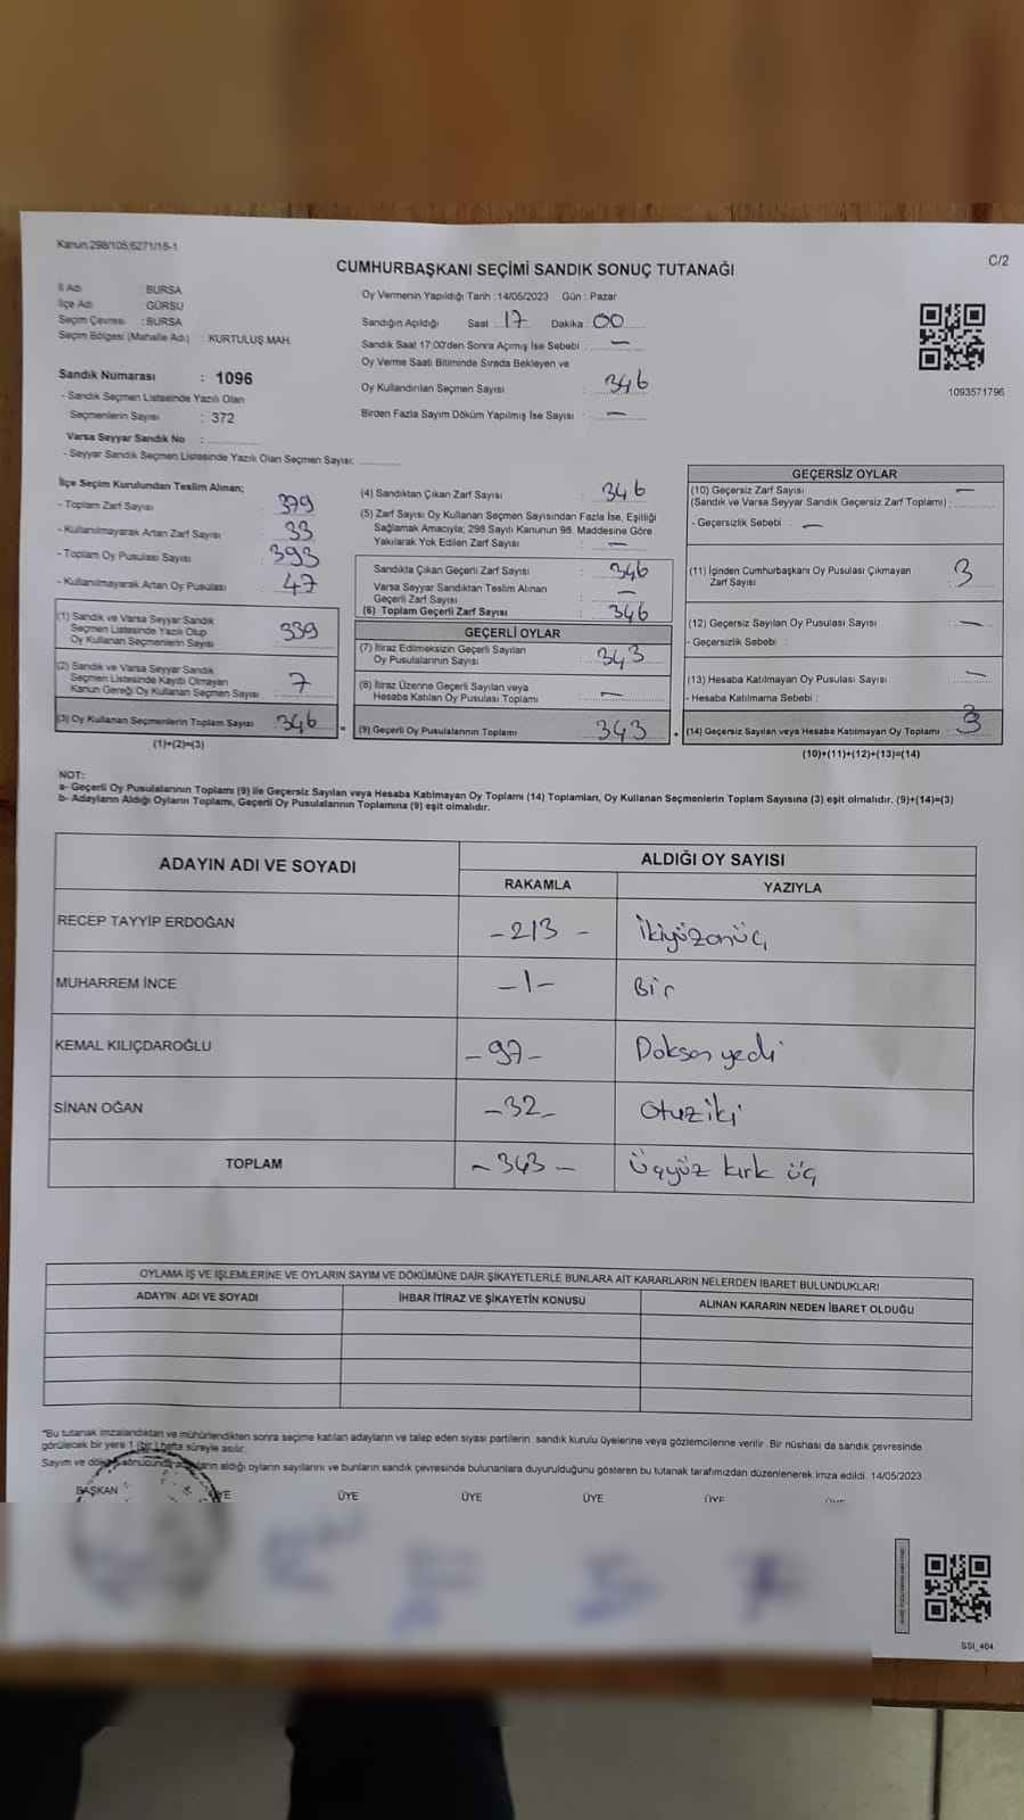 Kanun:298/105;6271/16-1
C/2
CUMHURBAŞKANI SEÇİMİ SANDIK SONUÇ TUTANAĞI
İl Adı BURSA
İlçe Adı GÜRSU
Seçim Çevresi :BURSA
Seçim Bölgesi (Mahalle Adı) : KURTULUŞ MAH.
Sandık Numarası : 1096
- Sandık Seçmen Listesinde Yazılı Olan
Seçmenlerin Sayısı : 372
Varsa Seyyar Sandık No :
- Seyyar Sandık Seçmen Listesinde Yazılı Olan Seçmen Sayısı:
Oy Vermenin Yapıldığı Tarih :14/05/2023 Gün : Pazar
Sandığın Açıldığı Saat 17 Dakika 00
Sandık Saat 17:00'den Sonra Açılmış İse Sebebi : —
Oy Verme Saati Bitiminde Sırada Bekleyen ve
Oy Kullandırılan Seçmen Sayısı : 346
Birden Fazla Sayım Döküm Yapılmış İse Sayısı : —
1093571796
İlçe Seçim Kurulundan Teslim Alınan;
- Toplam Zarf Sayısı : 379
- Kullanılmayarak Artan Zarf Sayısı : 33
- Toplam Oy Pusulası Sayısı : 393
- Kullanılmayarak Artan Oy Pusulası : 47
(1) Sandık ve Varsa Seyyar Sandık
Seçmen Listesinde Yazılı Olup
Oy Kullanan Seçmenlerin Sayısı : 339
(2) Sandık ve Varsa Seyyar Sandık
Seçmen Listesinde Kayıtlı Olmayan
Kanun Gereği Oy Kullanan Seçmen Sayısı : 7
(3) Oy Kullanan Seçmenlerin Toplam Sayısı : 346
(1)+(2)=(3)
(4) Sandıktan Çıkan Zarf Sayısı : 346
(5) Zarf Sayısı Oy Kullanan Seçmen Sayısından Fazla İse, Eşitliği
Sağlamak Amacıyla; 298 Sayılı Kanunun 98. Maddesine Göre
Yakılarak Yok Edilen Zarf Sayısı : —
Sandıkta Çıkan Geçerli Zarf Sayısı : 346
Varsa Seyyar Sandıktan Teslim Alınan
Geçerli Zarf Sayısı : —
(6) Toplam Geçerli Zarf Sayısı : 346
GEÇERLİ OYLAR
(7) İtiraz Edilmeksizin Geçerli Sayılan
Oy Pusulalarının Sayısı : 343
(8) İtiraz Üzerine Geçerli Sayılan veya
Hesaba Katılan Oy Pusulası Toplamı : —
(9) Geçerli Oy Pusulalarının Toplamı : 343
GEÇERSİZ OYLAR
(10) Geçersiz Zarf Sayısı —
(Sandık ve Varsa Seyyar Sandık Geçersiz Zarf Toplamı)
- Geçersizlik Sebebi : —
(11) İçinden Cumhurbaşkanı Oy Pusulası Çıkmayan
Zarf Sayısı 3
(12) Geçersiz Sayılan Oy Pusulası Sayısı —
- Geçersizlik Sebebi :
(13) Hesaba Katılmayan Oy Pusulası Sayısı —
- Hesaba Katılmama Sebebi :
(14) Geçersiz Sayılan veya Hesaba Katılmayan Oy Toplamı : 3
(10)+(11)+(12)+(13)=(14)
NOT:
a- Geçerli Oy Pusulalarının Toplamı (9) ile Geçersiz Sayılan veya Hesaba Katılmayan Oy Toplamı (14) Toplamları, Oy Kullanan Seçmenlerin Toplam Sayısına (3) eşit olmalıdır. (9)+(14)=(3)
b- Adayların Aldığı Oyların Toplamı, Geçerli Oy Pusulalarının Toplamına (9) eşit olmalıdır.
ADAYIN ADI VE SOYADI ALDIĞI OY SAYISI
RAKAMLA YAZIYLA
RECEP TAYYİP ERDOĞAN -213- İkiyüzonüç
MUHARREM İNCE -1- Bir
KEMAL KILIÇDAROĞLU -97- Doksan yedi
SİNAN OĞAN -32- Otuziki
TOPLAM -343- Üçyüz kırk üç
OYLAMA İŞ VE İŞLEMLERİNE VE OYLARIN SAYIM VE DÖKÜMÜNE DAİR ŞİKAYETLERLE BUNLARA AİT KARARLARIN NELERDEN İBARET BULUNDUKLARI
ADAYIN ADI VE SOYADI İHBAR İTİRAZ VE ŞİKAYETİN KONUSU ALINAN KARARIN NEDEN İBARET OLDUĞU
"Bu tutanak imzalandıktan ve mühürlendikten sonra seçime katılan adayların ve talep eden siyasi partilerin sandık kurulu üyelerine veya gözlemcilerine verilir. Bir nüshası da sandık çevresinde
görülecek bir yere 1 (bir) hafta süreyle asılır.
Sayım ve döküm sonucunda aldığı oyların sayılarını ve bunların sandık çevresinde bulunanlara duyurulduğunu gösteren bu tutanak tarafımızdan düzenlenerek imza edildi. 14/05/2023
BAŞKAN ÜYE ÜYE ÜYE ÜYE ÜYE
SSI_404